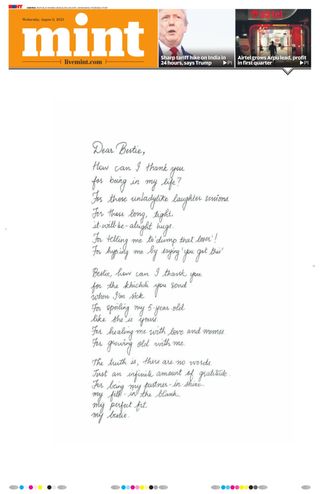 Wednesday, August 6, 2025
mint
livemint.com
Sharp tariff hike on India in
24 hours, says Trump ▶P1
Airtel grows Arpu lead, profit
in first quarter ▶P1
Dear Bestie,
How can I thank you
for being in my life?
For those unladylike laughter sessions
For those long, tight,
it-will-be-alright hugs.
For telling me to 'dump that loser'!
For hyping me by saying 'you got this'
Bestie, how can I thank you
for the khichdi you send
when I'm sick.
For spoiling my 5-year old
like she is yours.
For healing me with love and momos.
For growing old with me.
The truth is, there are no words.
Just an infinite amount of gratitude.
For being my partner-in-shine.
my fill-in the blank.
my perfect fit.
my bestie.